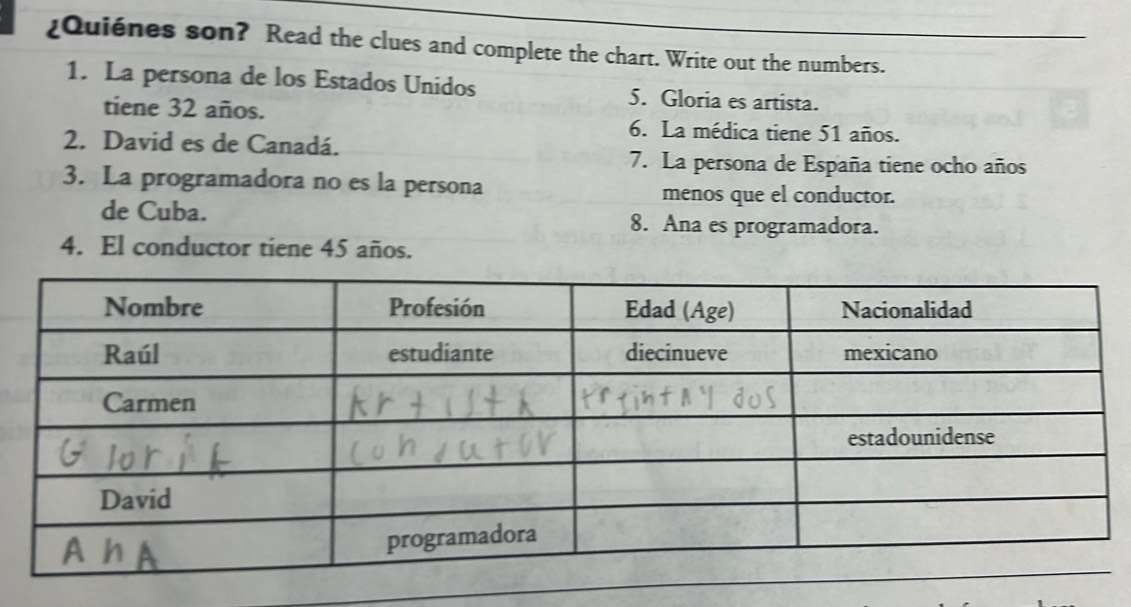 ¿Quiénes son? Read the clues and complete the chart. Write out the numbers.
1. La persona de los Estados Unidos
tiene 32 años.
2. David es de Canadá.
3. La programadora no es la persona
de Cuba.
4. El conductor tiene 45 años.
5. Gloria es artista.
6. La médica tiene 51 años.
7. La persona de España tiene ocho años
menos que el conductor.
8. Ana es programadora.
Nombre Profesión Edad (Age) Nacionalidad
Raúl estudiante diecinueve mexicano
Carmen Artista trintay dos
Gloria Conductor estadounidense
David
Ana programadora